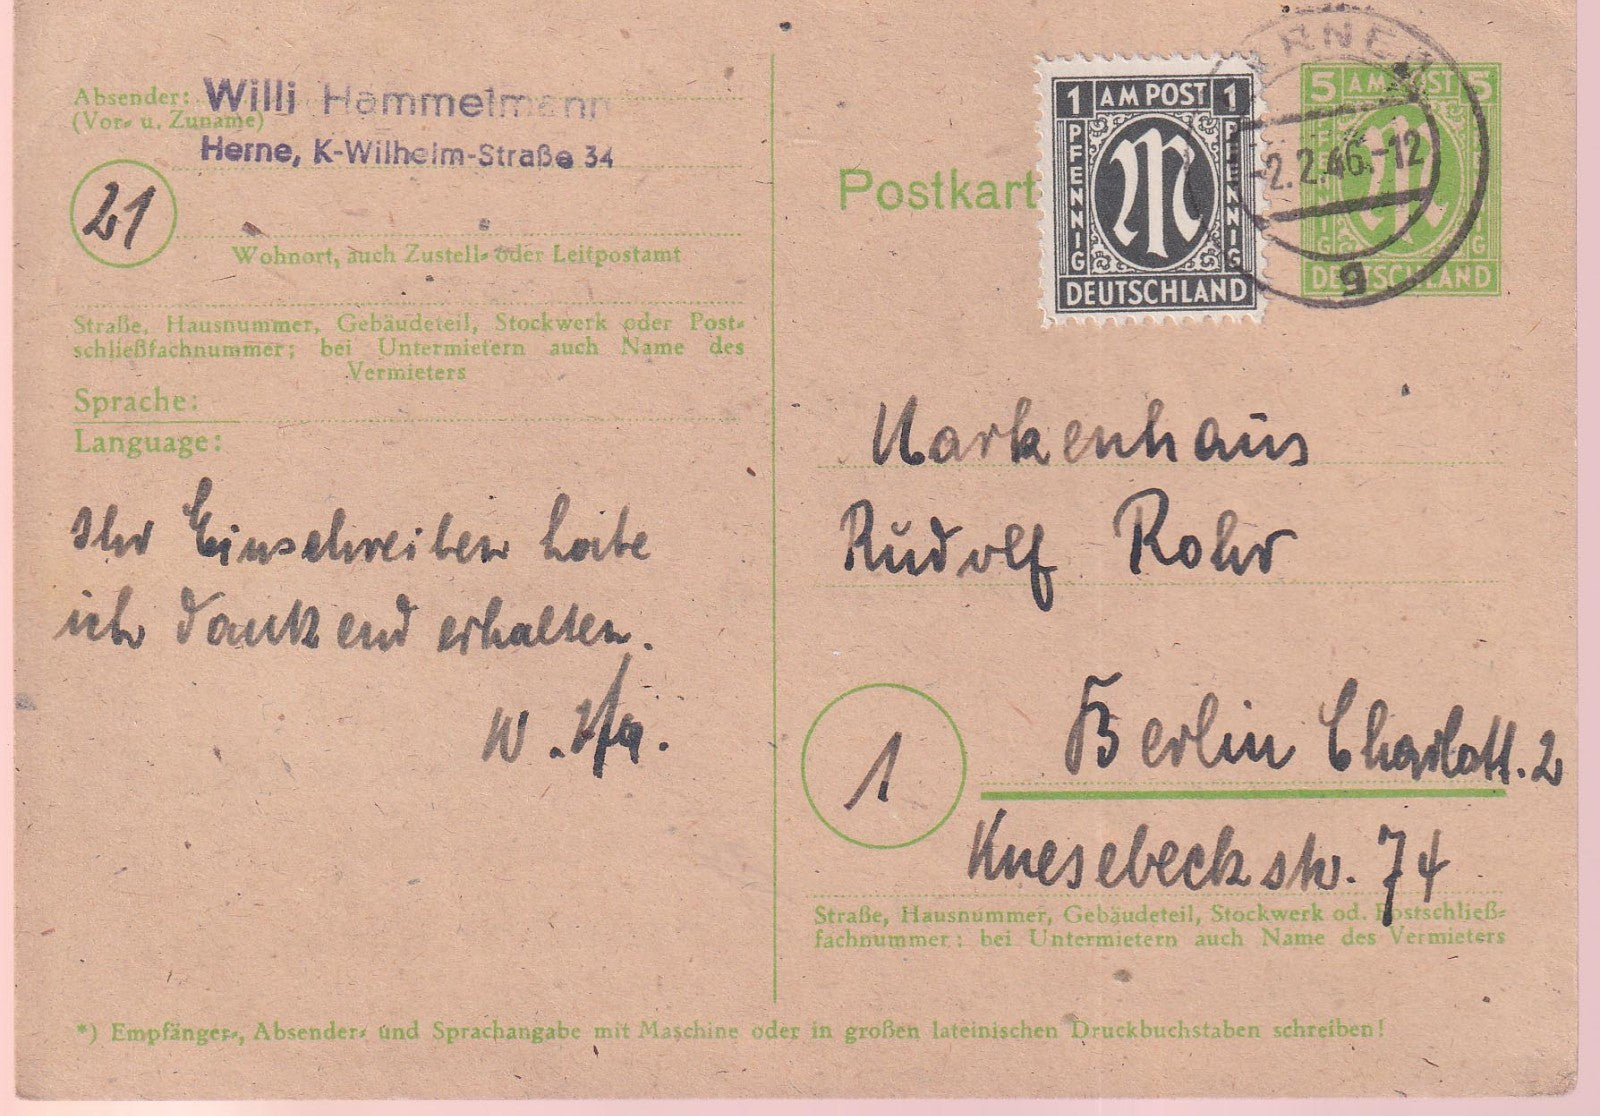 Absender: Willi Hammelmann
(Vor- u. Zuname)
Herne, K-Wilhelm-Straße 34
21
Wohnort, auch Zustell- oder Leitpostamt
Straße, Hausnummer, Gebäudeteil, Stockwerk oder Post-
schließfachnummer; bei Untermietern auch Name des
Vermieters
Sprache:
Language:
Ihr Einschreiben habe
ich dankend erhalten.
W.
Postkart
1 AM POST 1
PFENNIG PFENNIG
DEUTSCHLAND
HERNE
-2.2.46.-12
g
5 AM POST 5
PFENNIG PFENNIG
DEUTSCHLAND
Markenhaus
Rudolf Rohr
1
Berlin Charlott. 2
Knesebeckstr. 74
Straße, Hausnummer, Gebäudeteil, Stockwerk od. Postschließ-
fachnummer; bei Untermietern auch Name des Vermieters
*) Empfänger-, Absender- und Sprachangabe mit Maschine oder in großen lateinischen Druckbuchstaben schreiben!